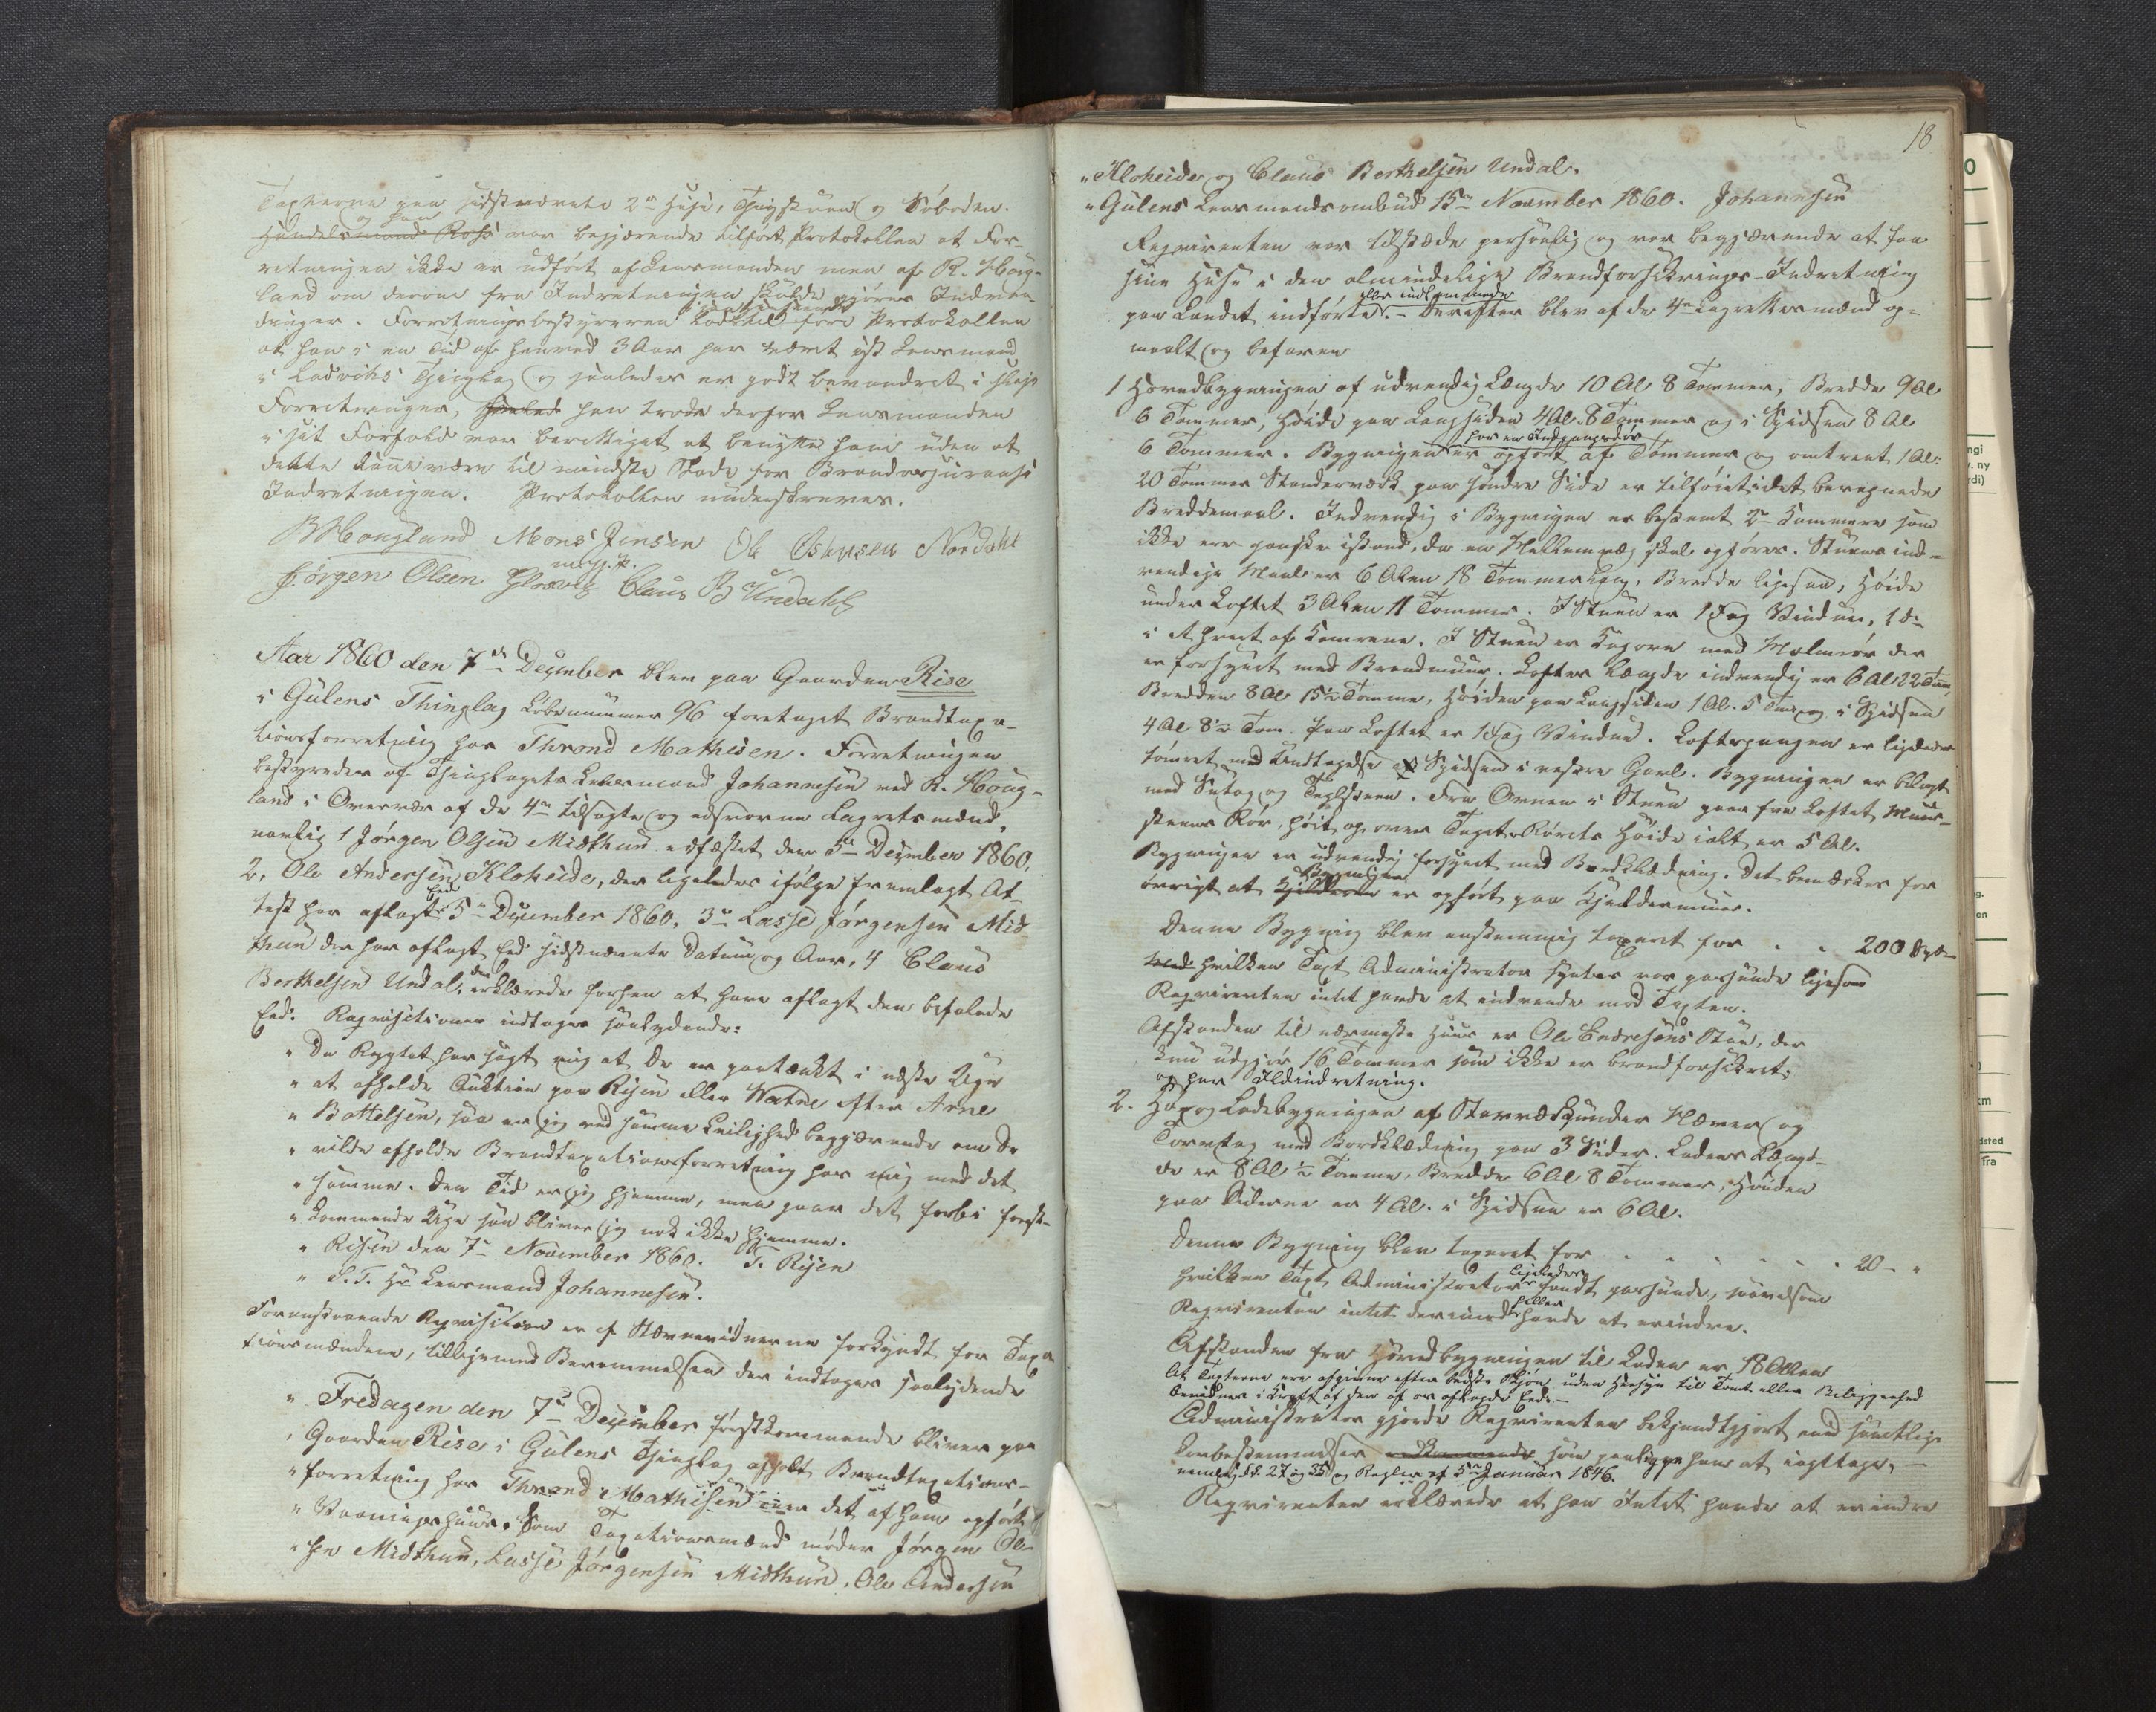 Taxterne paa sidstnævnte 2de Huse, Thingstuen og Søboden.
og han
Handelsmand Rohs var begjærende tilført Protokollen at For-
retningen ikke er udført af Lensmanden men af R. Houg-
land om derom fra Indretningen skulde gjøres Indven-
dinger. Forretningsbestyreren lod tilføre Protokollen
at han i en Tid af henved 3 Aar har været const Lensmand
i Ladviks Thinglag og saaledes er godt bevandret i slige
Forretninger, saaled han trode derfor Lensmanden
i sit Forfald var berettiget at benytte ham uden at
dette kunne være til mindste Skade for Brandassurance
Indretningen. Protokollen underskreves.
R Hougland Mons Jensen Ole Nordahl
Jørgen Olsen m. p. P. Claus B Undahl
Aar 1860 den 7de December blev paa Gaarden Rise
i Gulens Thinglag Løbenummer 96 foretaget Brandtaxa-
tionsforretning hos Thrond Mathisen. Forretningen
bestyredes af Thinglagets Lensmand Johannesen ved R. Houg-
land i Overvær af de 4re tilsagte og edsvorne Lagrettesmænd,
nemlig 1 Jørgen Olsen Midthun edfæstet den 5te December 1860,
2, Ole Andersen Kloheide, der ligeledes ifølge fremlagt At-
Eed
test har aflagt 5te December 1860, 3die Lasse Jørgensen Mid-
thun der har aflagt Eed sidstnævnte Datum og Aar, 4 Claus
der
Berthelsen Undal, erklærede forhen at have aflagt den befalede
Eed. Reqvisitionen indtages saalydende:
" Da Rygtet har sagt mig at De er paatænkt i næste Uge
" at afholde Auktion paa Risen eller Watne efter Arne
" Bottelsen, saa er jeg ved samme Leilighed begjærende om De
" vilde afholde Brandtaxationsforretning hos mig med det
" samme. Den Tid er jeg hjemme, men gaar det forbi først-
" kommende Uge saa bliver jeg nok ikke hjemme.
" Risen den 7de November 1860. T. Risen
" S. T. Hr Lensmand Johannesen.
Foranstaaende Reqvisition er af Stævnevidnerne forkyndt for Taxa-
tionsmændene, tilligemed Berammelsen der indtages saalydende
" Fredagen den 7de December førstkommende bliver paa
" Gaarden Rise i Gulens Thinglag afholdt Brandtaxations-
" forretning hos Thrond Mathisen over det af ham opførte
" Vaaningshuus. Som Taxationsmænd møder Jørgen Ol-
" sen Midthun, Lasse Jørgensen Midthun, Ole Andersen
18
" Kloheide og Claus Berthelsen Undal.
" Gulens Lensmandsombud 15de November 1860. Johannesen
Reqvirenten var tilstæde personlig og var begjærende at faa
sine Huse i den almindelige Brandforsikrings-Indretning
paa Landet indførte. – Derefter blev af de 4re Lagrettesmænd op-
maalt og befaren
1 Hovedbygningen af udvendig Længde 10 Al. 8 Tommer, Bredde 9 Al.
6 Tommer, Høide paa Langsiden 4 Al. 8 Tommer og i Spidsen 8 Al.
har en Indgangsdør
6 Tommer. Bygningen er opført af Tømmer og omtrent 1 Al.
20 Tommer Standerværk paa søndre Side er tilføiet idet beregnede
Breddemaal. Indvendig i Bygningen er bestemt 2de Kammere som
ikke ere ganske istand, da en Mellemvæg skal opføres. Stuens ind-
vendige Maal er 6 Alen 18 Tommer lang, Bredde ligesaa, Høide
under Loftet 3 Alen 11 Tommer. I Stuen er 1 Fag Vindue, 1 do
i et hvert af Kamrene. I Stuen er Kogovn med Malmrør der
er forsynet med Brandmuur. Loftes Længde indvendig er 6 Al. 22 Tom
Bredden 8 Al. 15½ Tomme, Høiden paa Langsiden 1 Al. 5 Tom og i Spidsen
4 Al 8½ Tom. Paa Loftet er 1 Fag Vindue. Loftsgangen er ligeledes
tømret med Undtagelse af Spidsen i vestre Gavl. Bygningen er belagt
med Sutag og Taglsteen. Fra Ovnen i Stuen gaar fra Loftet Muur-
steens Rør, høit op over Taget. Rørets Høide ialt er 5 Al.
Bygningen er udvendig forsynet med Bordklædning. Det bemærkes for
Bygningen
øvrigt at er opført paa Kjældermuur.
Denne Bygning blev enstemmig taxeret for . . 200 Spd
Med hvilken Taxt Administrator syntes var passende ligesom
Reqvirenten intet havde at indvende mod Taxten.
Afstanden til nærmeste Huus er Ole Endresens Stue, der
kun udgjør 16 Tommer som ikke er brandforsikret,
og har Ildindretning.
2. Høe og Ladebygningen af Stavværk under Næver og
Torvtag med Bordklædning paa 3 Sider. Ladens Læng-
de er 8 Al ½ Tomme, Bredde 6 Al 8 Tommer, Høiden
paa Siderne er 4 Al. i Spidsen er 6 Al.
Denne Bygning blev taxeret for . . . . . 20 - "
ligeledes
hvilken Taxt Administrator fandt passende, saavelsom
heller
Reqvirenten intet derimod havde at erindre.
Afstanden fra Hovedbygningen til Laden er 18 Alen
At Taxterne ere afgivne efter bedste Skjøn uden Hensyn til Tomt eller Beliggenhed
bevidnes i Kraft af den af os aflagte Eed. –
Administrator gjorde Reqvirenten bekjendtgjort med samtlige
Lovbestemmelser vedkommende som paaligger ham at iagttage, –
nemlig §§. 27 og 35 og Regler af 5te Januar 1846.
Reqvirenten erklærede at han Intet havde at erindre